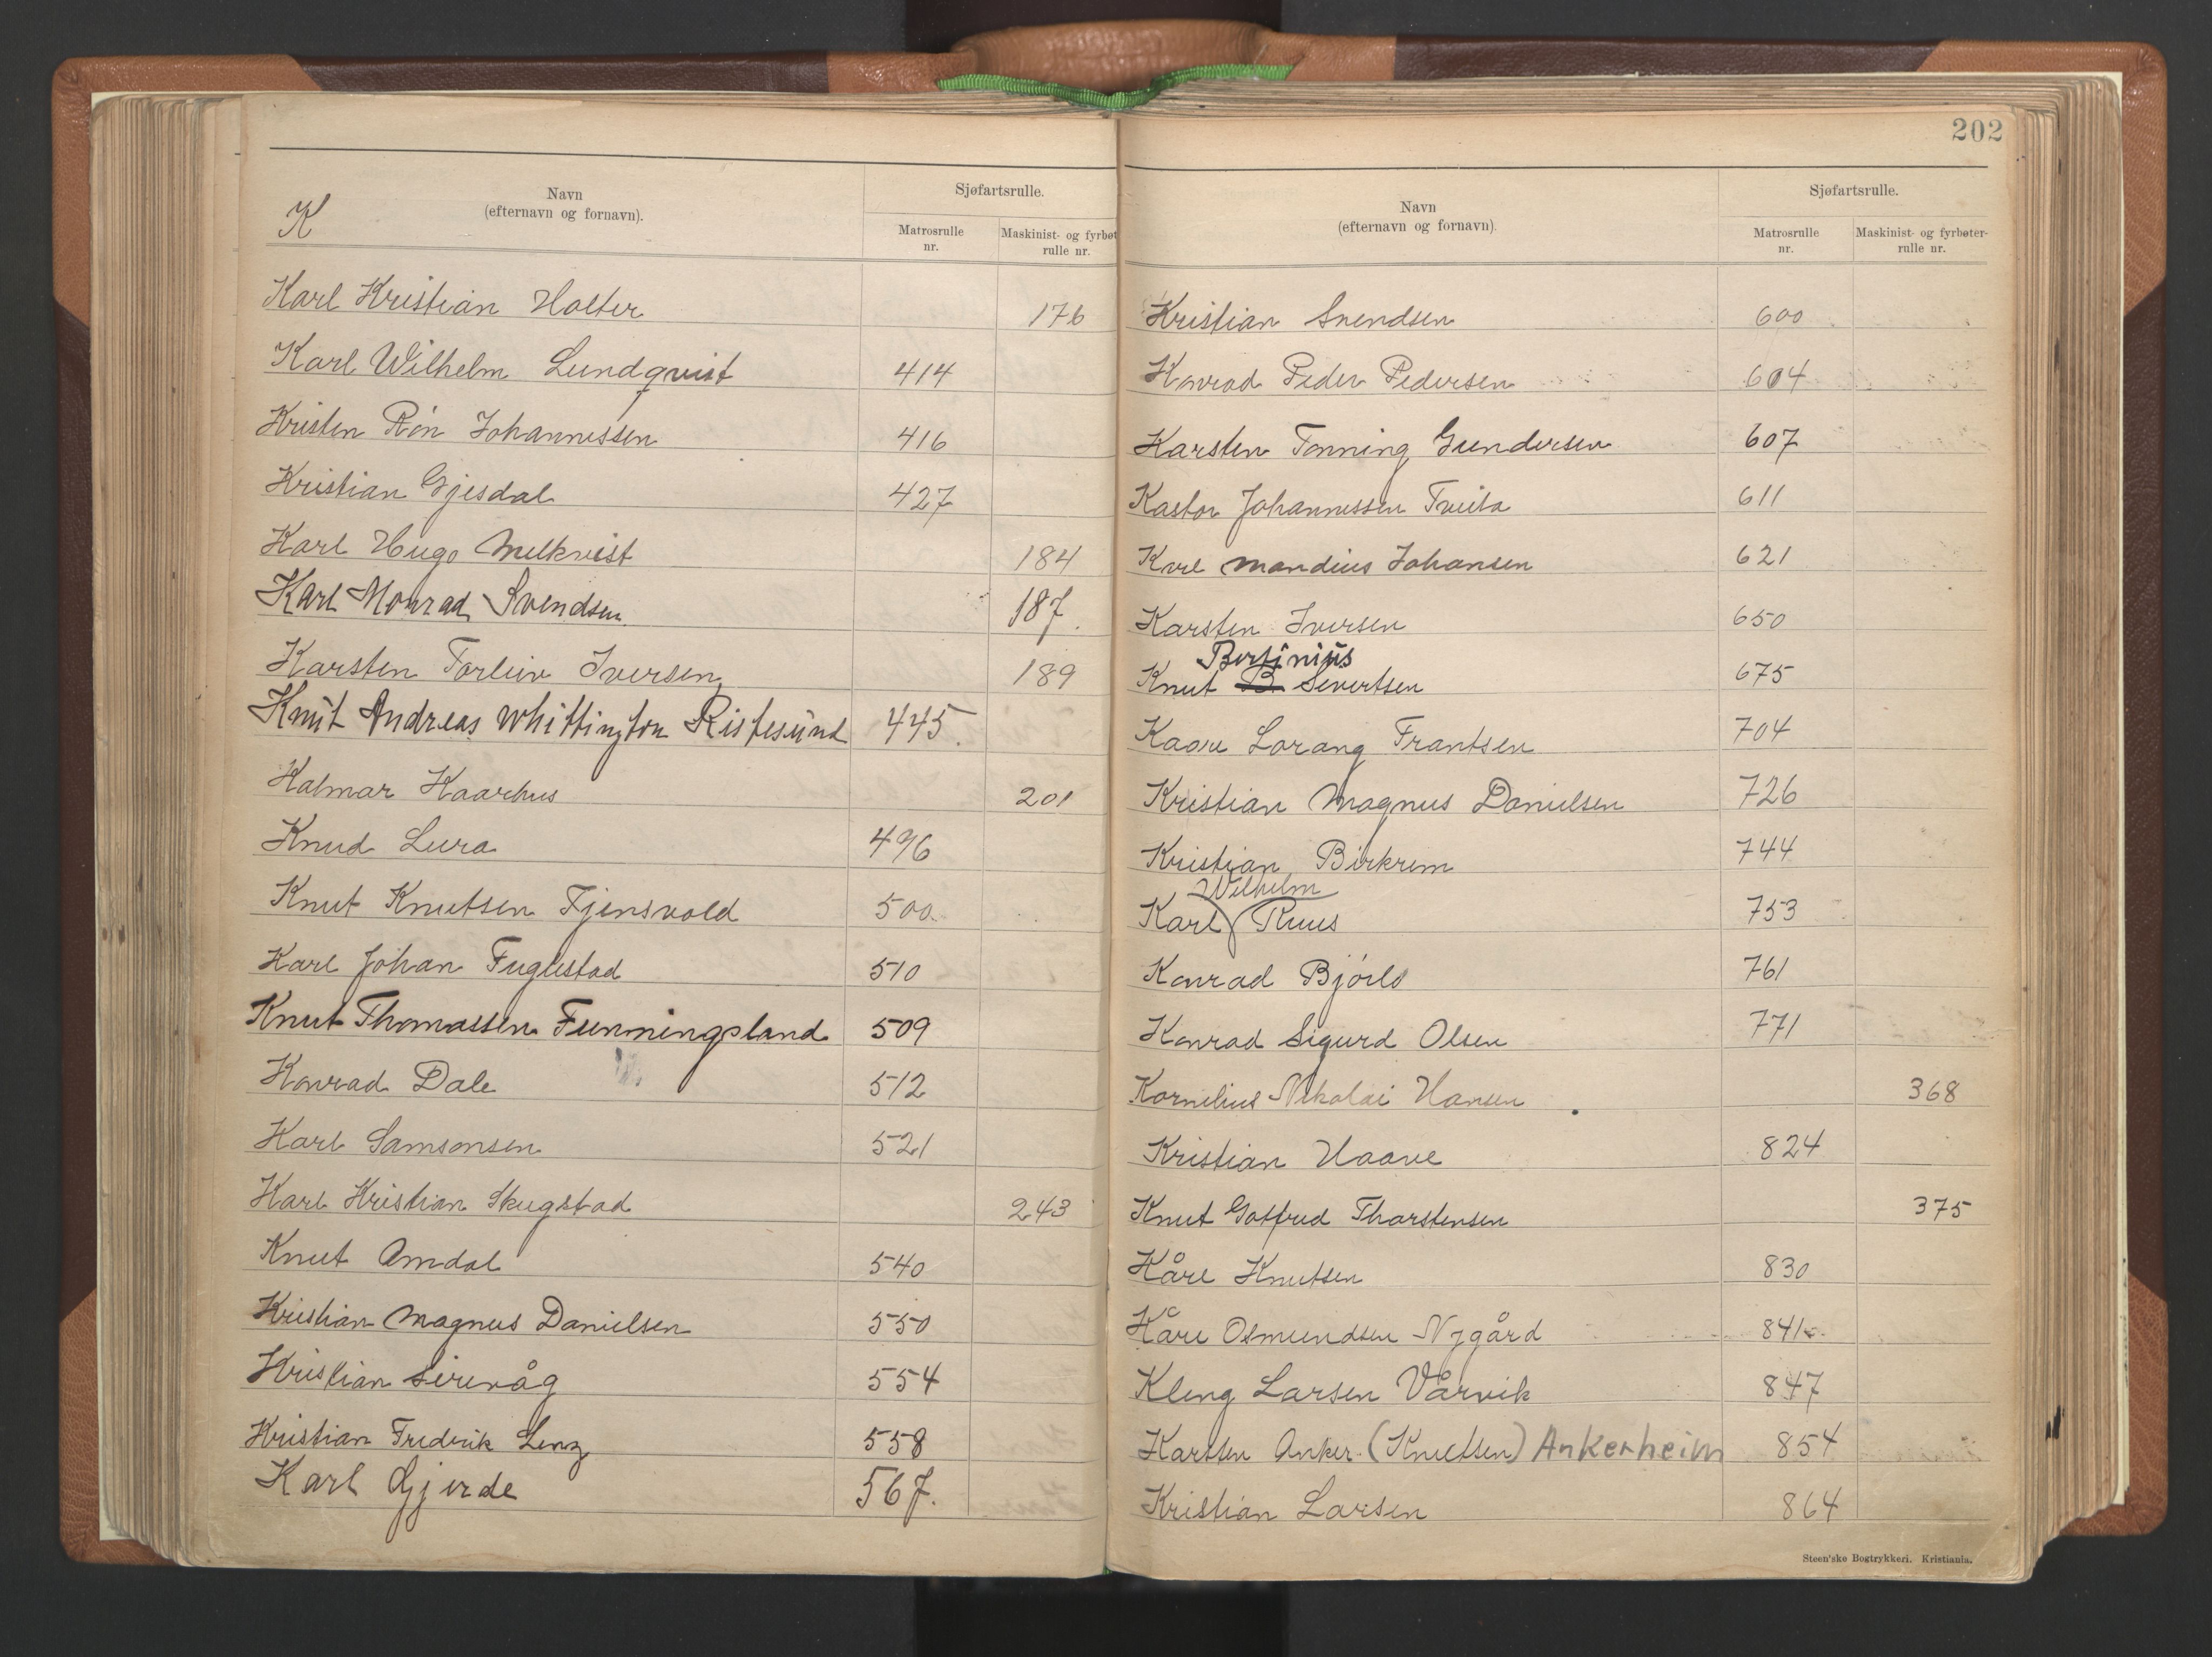 K
Navn
(efternavn og fornavn).
Sjøfartsrulle.
Matrosrulle
nr.
Maskinist- og fyrbøt
rulle nr.
Karl Kristian Holter 176
Karl Wilhelm Lundqvist 414
Kristen Røn Johannessen 416
Kristian Gjesdal 427
Karl Hugo Melkvist 184
Karl Monrad Svendsen 187.
Karsten Torleiv Iversen 189
Knut Andreas Whittington Ristesund 445.
Kalmar Haarhus 201
Knud Lura 496
Knut Knutsen Tjensvold 500
Karl Johan Fuglestad 510
Knut Thomassen Funningsland 509
Konrad Dale 512
Karl Samsonsen 521
Karl Kristian Skugstad 243
Knut Omdal 540
Kristian Magnus Danielsen 550
Kristian Sirevåg 554
Kristian Fredrik Lenz 558
Karl Gjerde 567.
202
Navn
(efternavn og fornavn).
Sjøfartsrulle.
Matrosrulle
nr.
Maskinist- og fyrbøter-
rulle nr.
Kristian Svendsen 600
Konrad Peder Pedersen 604
Karsten Tonning Gundersen 607
Kastor Johannessen Tveita 611
Karl Mandius Johansen 621
Karsten Iversen 650
Bertinius
Knut B. Severtsen 675
Kaare Lorang Frantsen 704
Kristian Magnus Danielsen 726
Kristian Birkrem 744
Wilhelm
Karl Ruus 753
Konrad Bjørlo 761
Konrad Sigurd Olsen 771
Kornelius Nikolai Hansen 368
Kristian Haave 824
Knut Gotfred Thorstensen 375
Kåre Knutsen 830
Kåre Osmundsen Nygård 841
Kleng Larsen Vårvik 847
Karsten Anker (Knutsen) Ankerheim 854
Kristian Larsen 864
Steen'ske Bogtrykkeri. Kristiania.